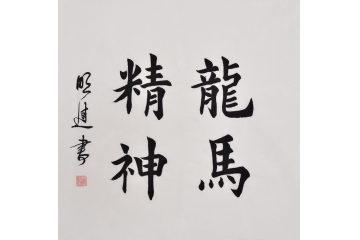 龍馬
精神
明進書